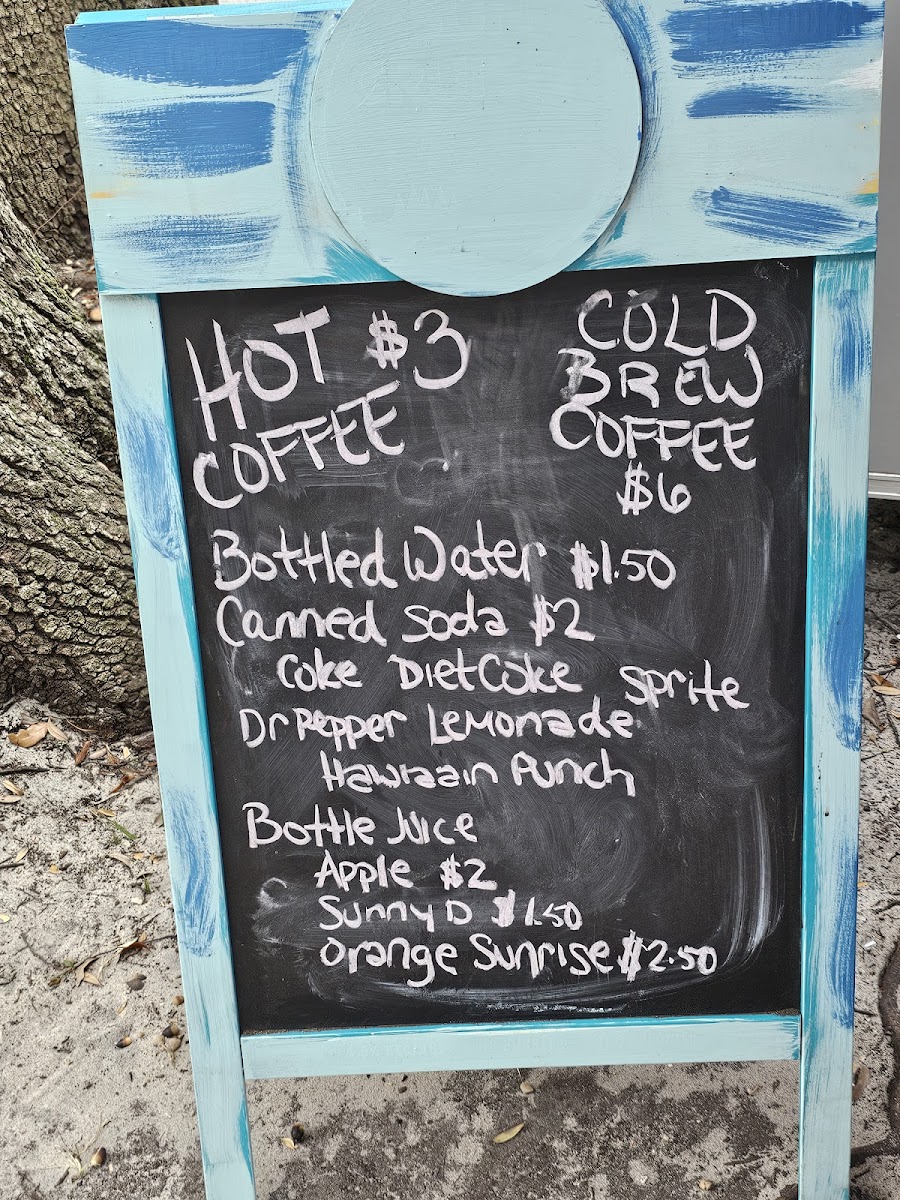 HOT $3
COFFEE
COLD
BREW
COFFEE
$6
Bottled Water $1.50
Canned Soda $2
Coke Diet Coke Sprite
Dr Pepper Lemonade
Hawiaain Punch
Bottle Juice
Apple $2
Sunny D $1.50
Orange Sunrise $2.50